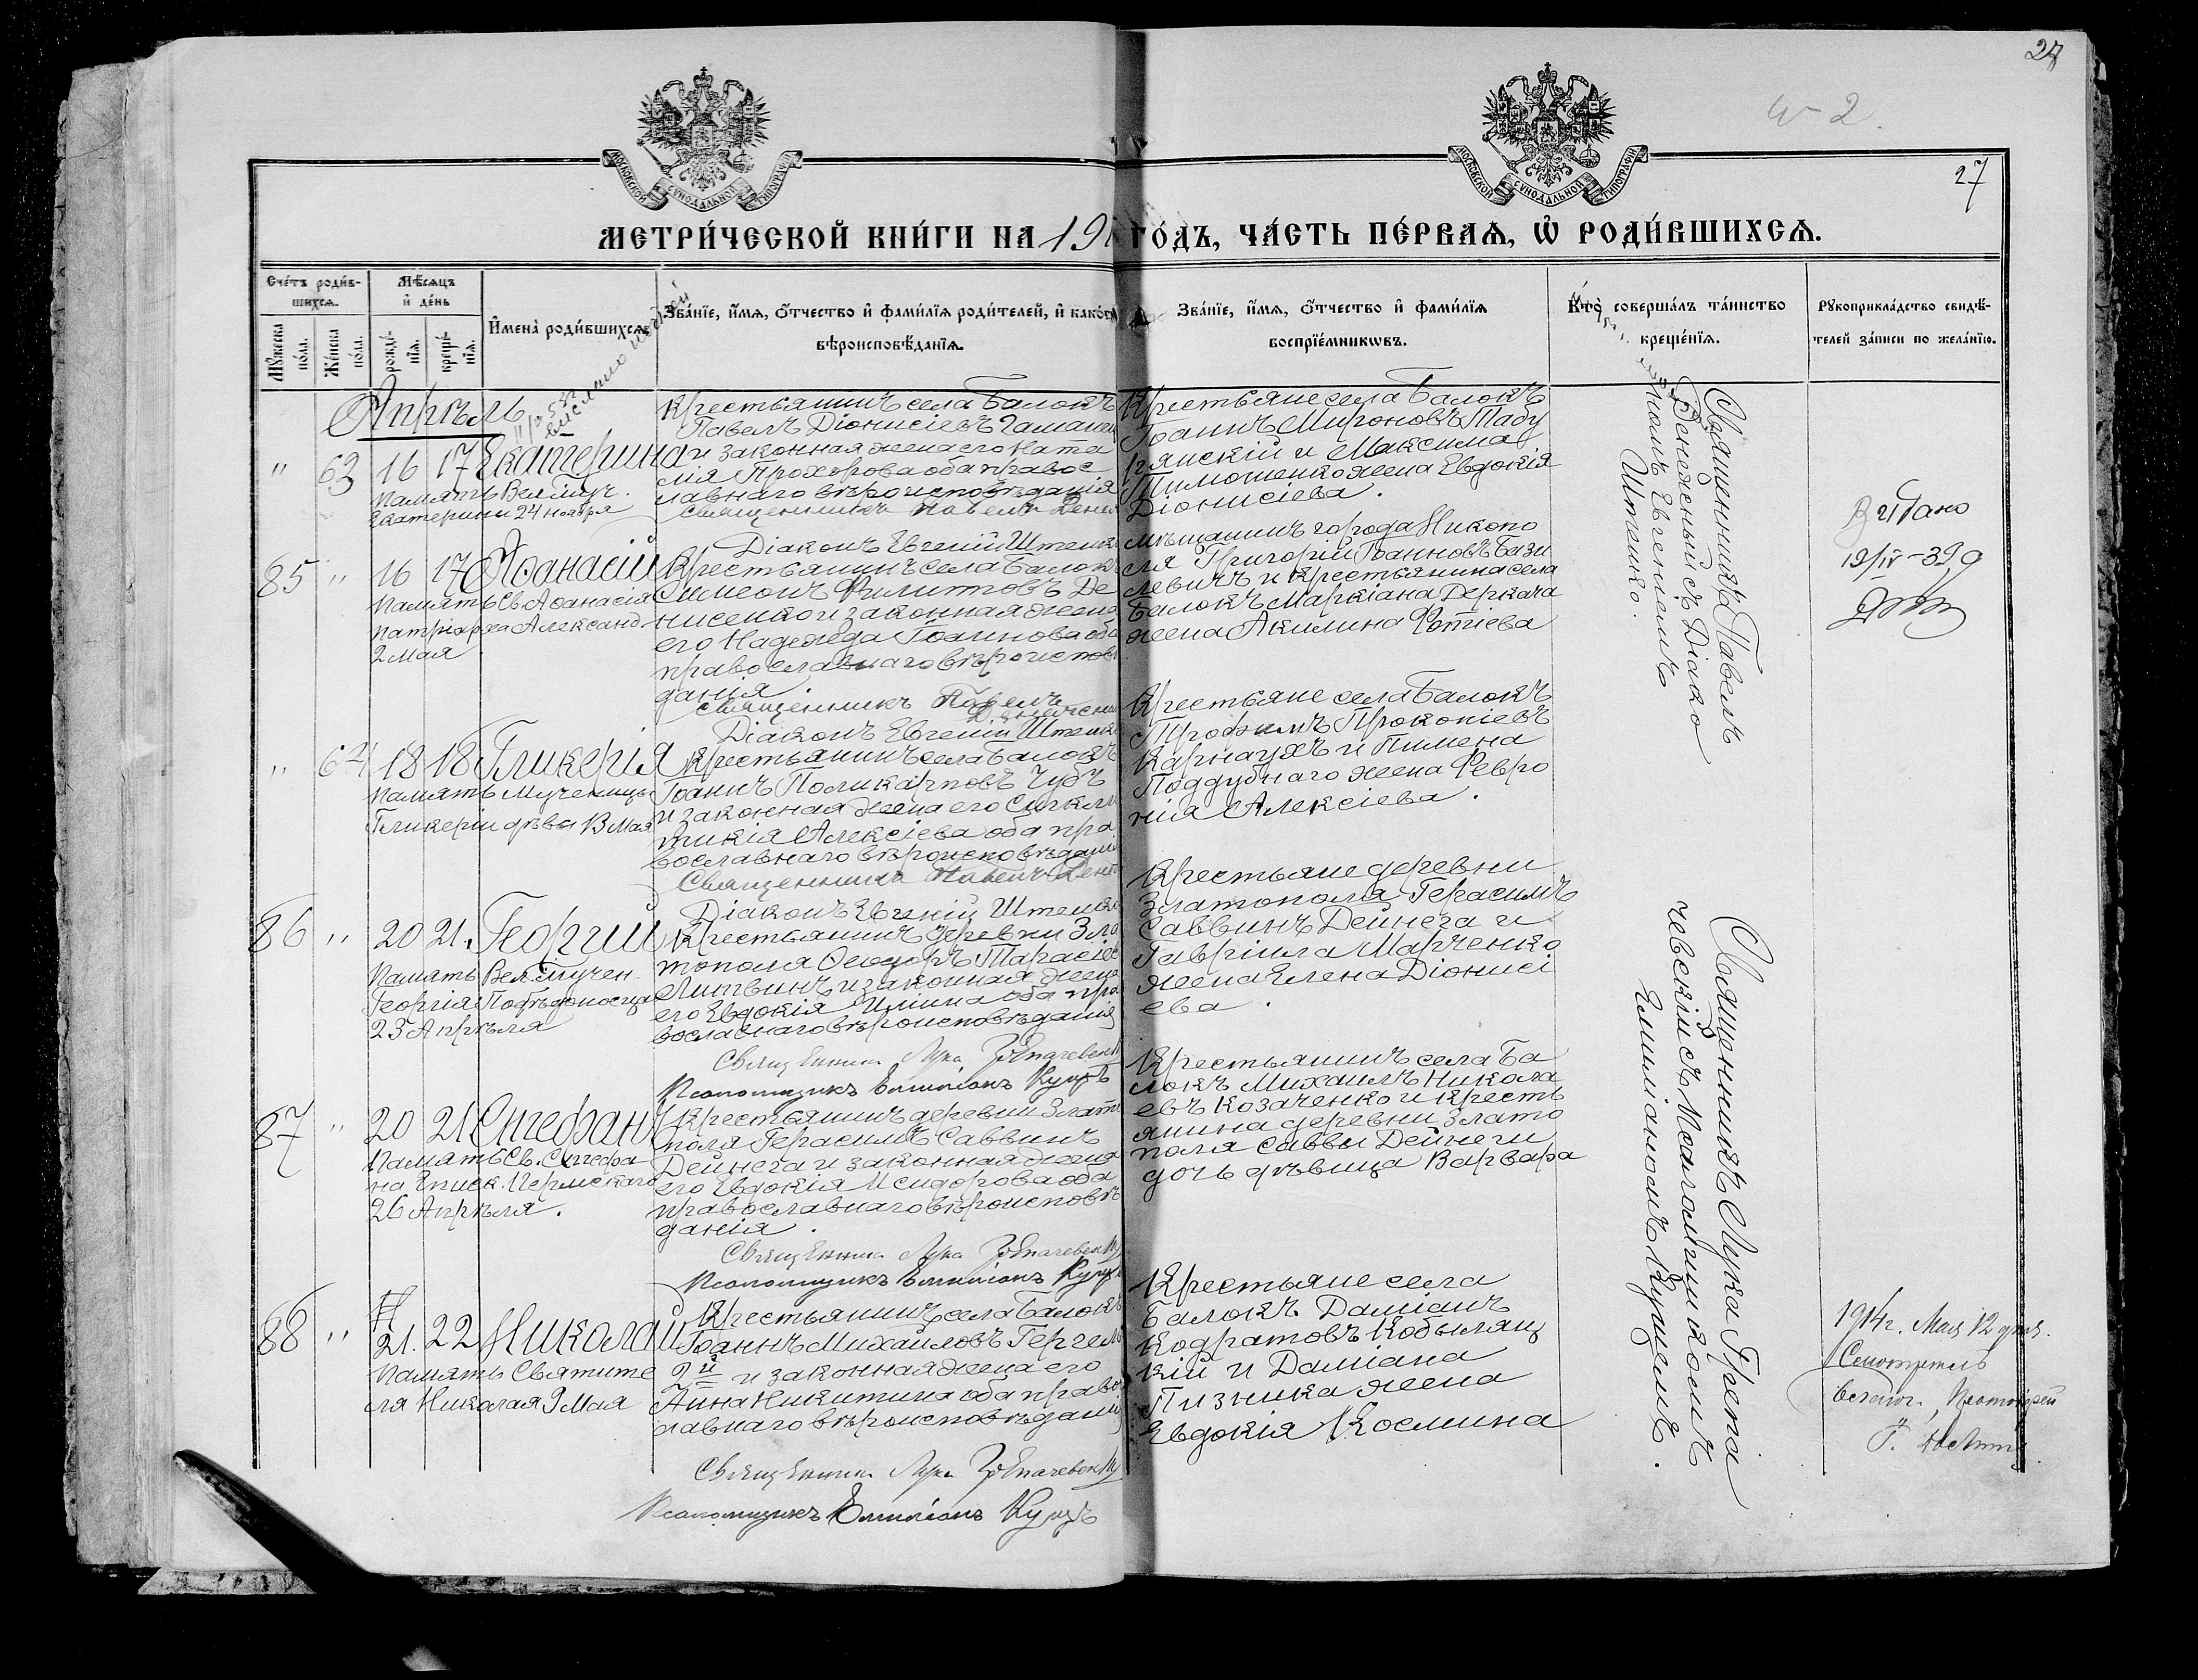 27
27
МОСКОВСКОЙ СѴНОДАЛЬНОЙ ТИПОГРАФІИ
МОСКОВСКОЙ СѴНОДАЛЬНОЙ ТИПОГРАФІИ
МЕТРИ́ЧЕСКОЙ КНИ́ГИ НА 19 ГО́ДЪ, ЧА́СТЬ ПЕ́РВАѦ, Ѡ҆ РОДИ́ВШИХСѦ.
Сче́тъ роди́в-
шихсѧ.
Мꙋ́жеска по́ла.
Же́нска по́ла.
Мѣ́сѧцъ
и҆ де́нь
рожде́-
нїѧ.
креще́-
нїѧ.
И҆мена̀ роди́вшихсѧ.
Зва́нїе, и҆́мѧ, ѻ҆́тчество и҆ фами́лїѧ роди́телей, и҆ како́гѡ
вѣроисповѣ́данїѧ.
Зва́нїе, и҆́мѧ, ѻ҆́тчество и҆ фами́лїѧ
воспрїе́мникѡвъ.
Кто̀ соверша́лъ та́инство
креще́нїѧ.
Рꙋкоприкла́дство свидѣ́-
телей за́писи по жела́нїю.
Апрѣль
" 63 16 17 Екатерина
Память Вел. муч.
Екатерины 24 ноября
Крестьянинъ села Балокъ
Павелъ Діонисіевъ
и законная жена его Ната
лія Прохорова оба правос
лавнаго вѣроисповѣданія
Священникъ Павелъ
Діаконъ Евгеній Штенко
Крестьяне села Балокъ
Іоаннъ Мироновъ Табу
рянскій и Максима
Тимошенко жена Евдокія
Діонисіева.
Священникъ Павелъ
съ Діако
номъ Евгеніемъ
Штенко.
85 " 16 17 Аѳанасій
Память Св. Аѳанасія
Патріарха Александ.
2 Мая
Крестьянинъ села Балокъ
Симеонъ Филиповъ Де
нисенко и законная жена
его Надежда Іоаннова оба
православнаго вѣроисповѣ
данія
Священникъ Павелъ
Діаконъ Евгеній Штенко
мѣщанинъ города Никопо
ля Григорій Іоанновъ Бази
левичъ и крестьянина села
Балокъ Маркіана Деркача
жена Акилина Фотіева
Видано
19/IV-39 р
" 64 18 18 Гликерія
Память Мученицы
Гликеріи дѣвы 13 Мая
Крестьянинъ села Балокъ
Іоаннъ Поликарповъ Чубъ
и законная жена его Синкли
тикія Алексіева оба пра
вославнаго вѣроисповѣданія
Священникъ Павелъ
Діаконъ Евгеній Штенко
Крестьяне села Балокъ
Трофимъ Прокопіевъ
Карнаухъ и Пимена
Поддубнаго жена Февро
нія Алексіева.
86 " 20 21. Георгій
Память Вел. мучен.
Георгія Побѣдоносца
23 Апрѣля
Крестьянинъ деревни Зла
тополя Ѳеодоръ Тарасіев
Литвинъ и законная жена
его Евдокія Иліина оба пра
вославнаго вѣроисповѣданія
Священникъ Лука Гребпачевскій
Псаломщикъ Емиліанъ Куцъ
Крестьяне деревни
Златополя Герасимъ
Саввинъ Дейнега и
Гавріила Марченко
жена Елена Діонисі
ева.
Священникъ Лука
чевскій съ Псаломщикомъ
Емиліаномъ Куцемъ.
87 " 20 21 Стефанъ
Память Св. Стефа
на Еписк. Пермскаго
26 Апрѣля.
Крестьянинъ деревни Злато
поля Герасимъ Саввинъ
Дейнега и законная жена
его Евдокія Исидорова оба
православнаго вѣроисповѣ
данія.
Священникъ Лука
Псаломщикъ Емиліанъ Куцъ
Крестьянинъ села Ба
локъ Михаилъ Никола
евъ Козаченко и кресть
янина деревни Злато
поля Саввы Дейнеги
дочь дѣвица Варвара
88 " 21. 22 Николай
Память Святите
ля Николая 9 Мая
Крестьянинъ села Балокъ
Іоаннъ Михайловъ Гергель
2й и законная жена его
Анна Никитина оба правос
лавнаго вѣроисповѣданія
Священникъ Лука
Псаломщикъ Емиліанъ Куцъ
Крестьяне села
Балокъ Даміанъ
Кодратовъ Кобыляц
кій и Даміана
Пизника жена
Евдокія Косміна
1914г. Мая 12 дня.